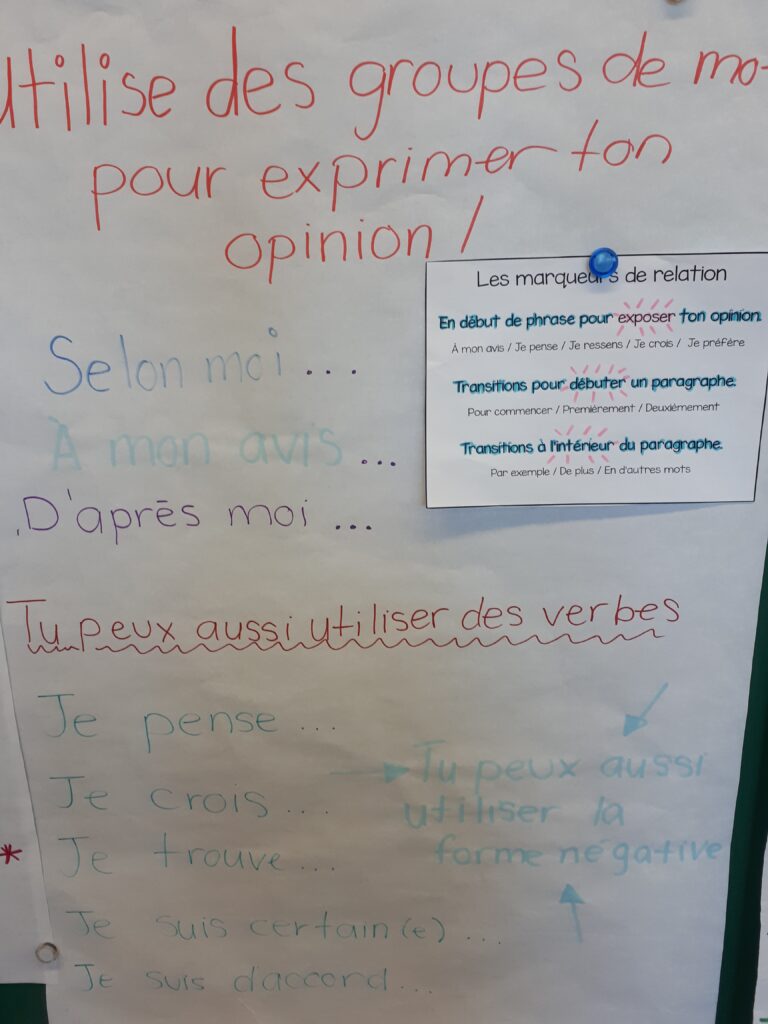 utilise des groupes de mo
pour exprimer ton
opinion !
Les marqueurs de relation
En début de phrase pour exposer ton opinion.
À mon avis / Je pense / Je ressens / Je crois / Je préfère
Transitions pour débuter un paragraphe.
Pour commencer / Premièrement / Deuxièmement
Transitions à l'intérieur du paragraphe.
Par exemple / De plus / En d'autres mots
Selon moi ...
À mon avis ...
D'après moi ...
Tu peux aussi utiliser des verbes
Je pense ...
Je crois ...
* Je trouve ...
Je suis certain(e) ...
Je suis d'accord ...
Tu peux aussi
utiliser la
forme négative